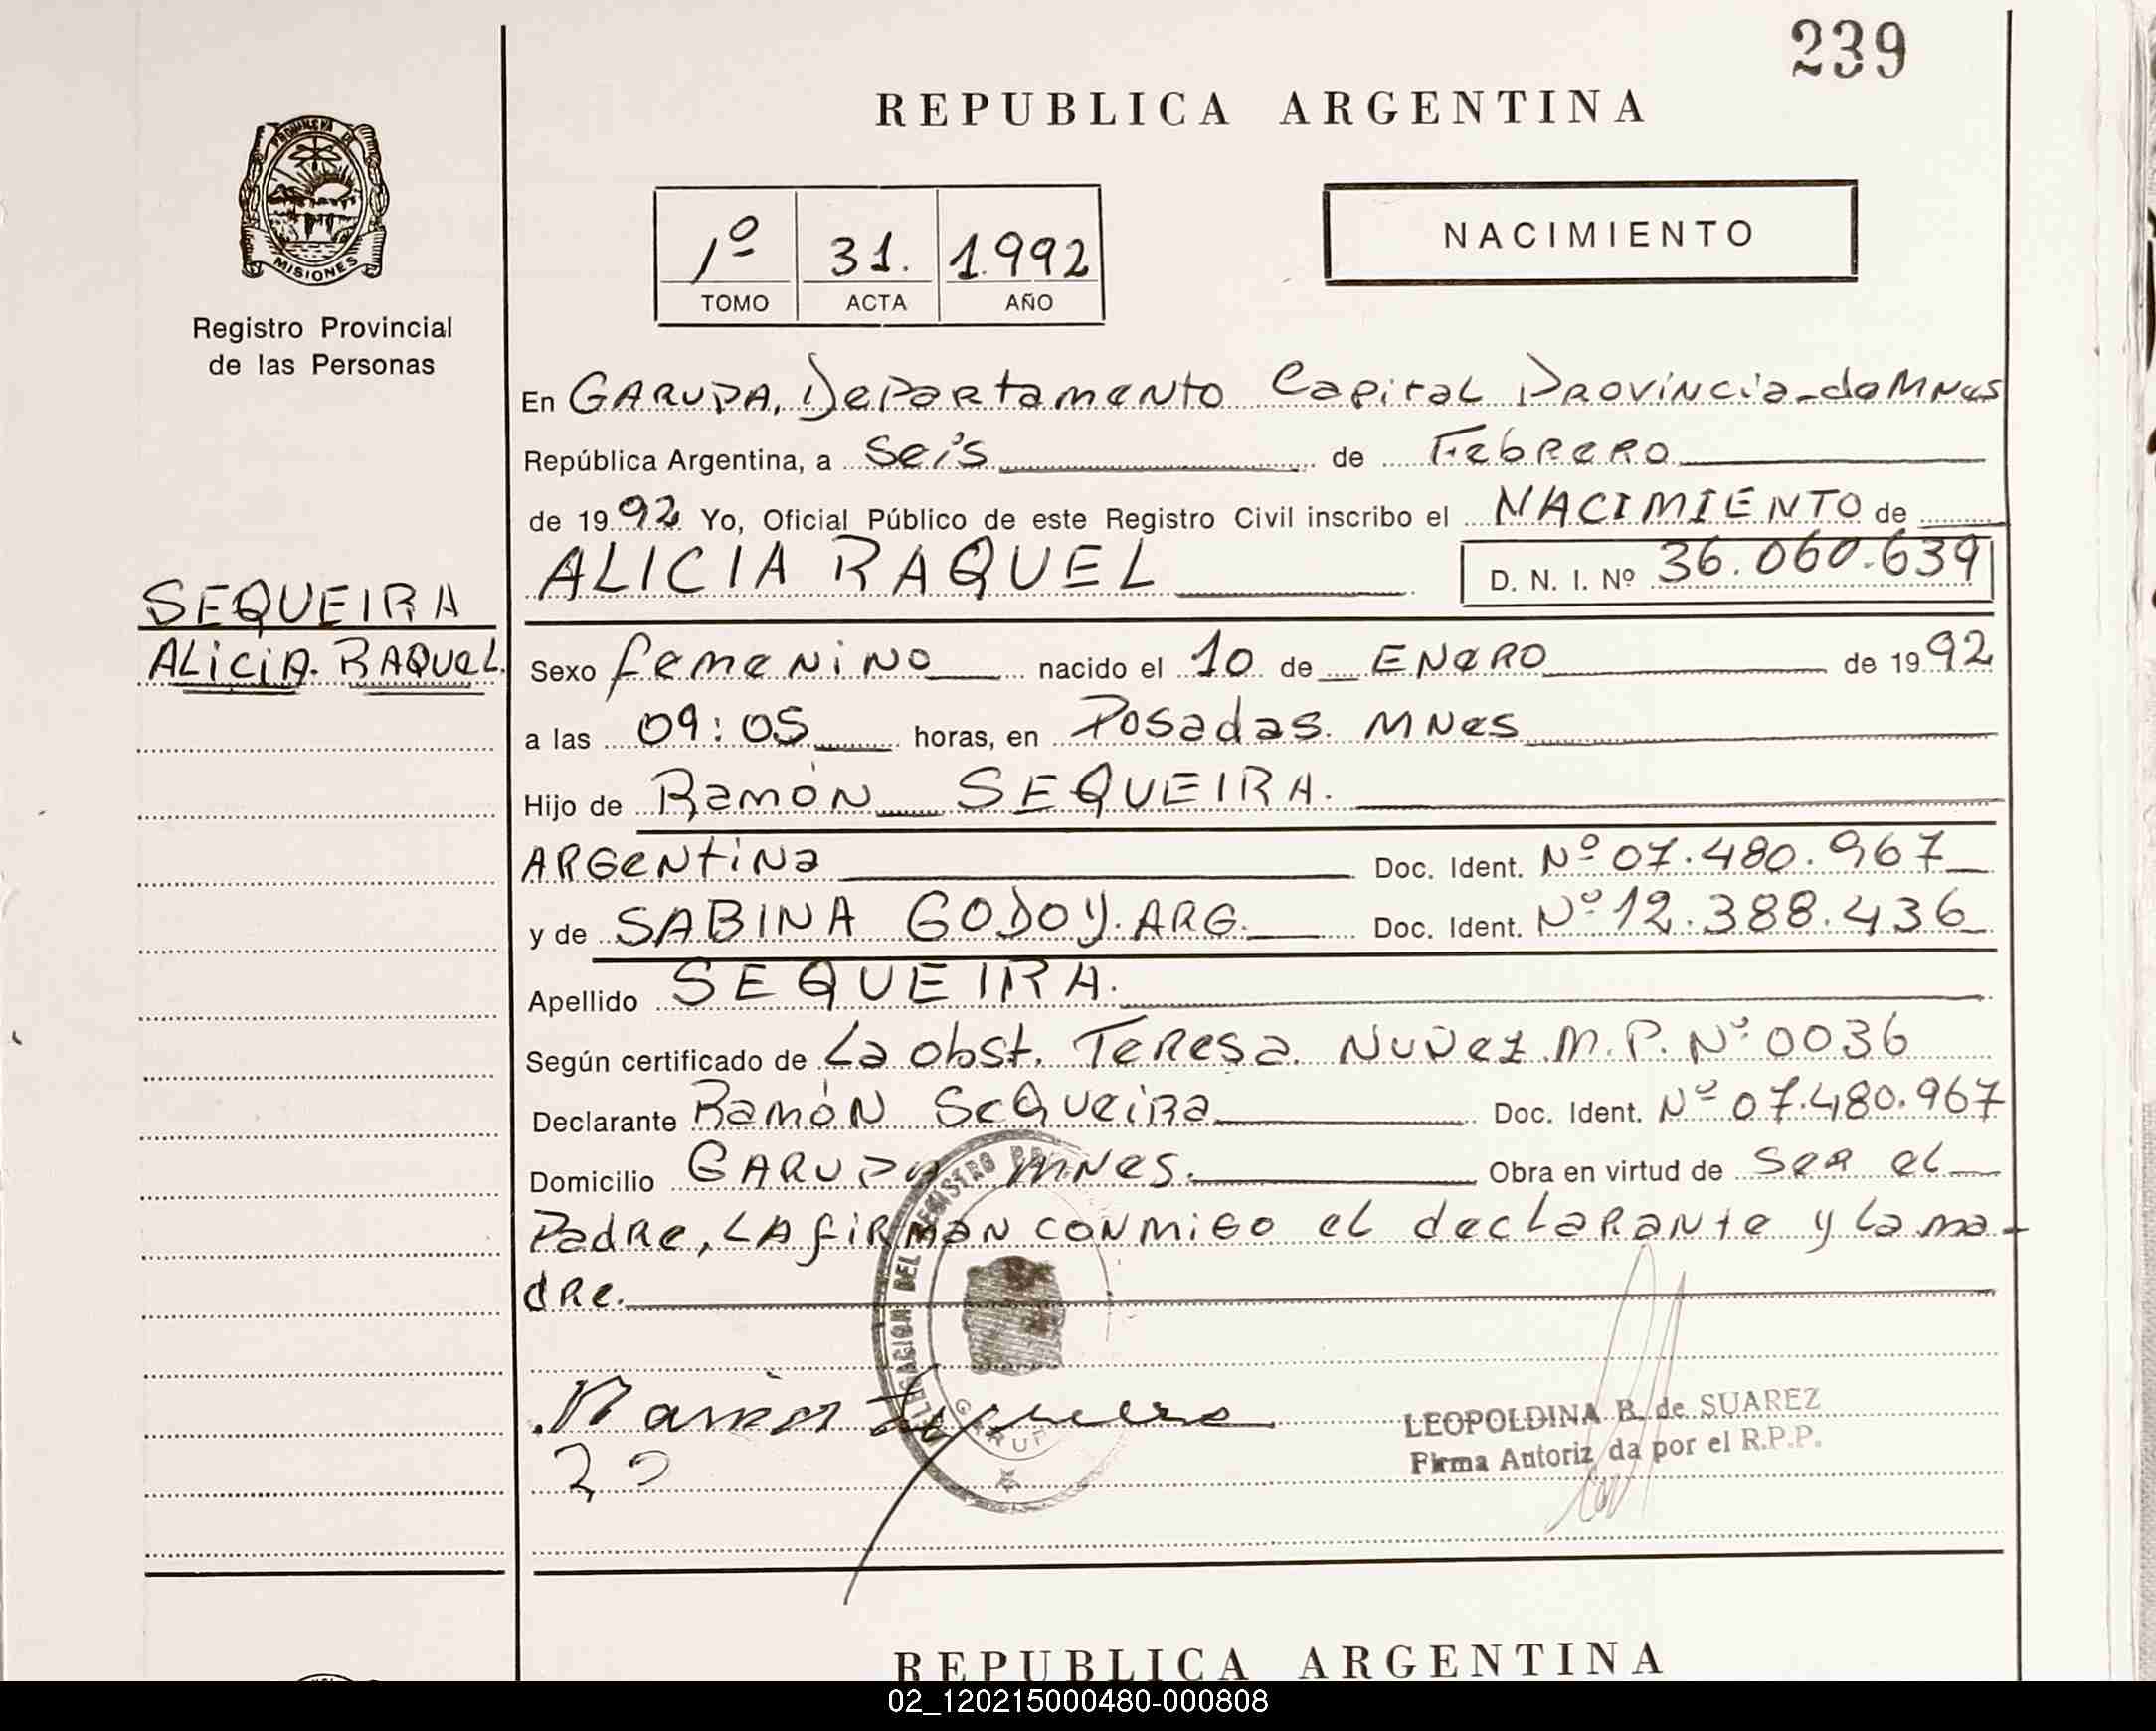 239
REPUBLICA ARGENTINA
PROVINCIA DE
MISIONES
Registro Provincial
de las Personas
1º 31. 1.992
TOMO ACTA AÑO
NACIMIENTO
En GARUPA, Departamento Capital Provincia de MNes
República Argentina, a Seis de Febrero
de 1992 Yo, Oficial Público de este Registro Civil inscribo el NACIMIENTO de
ALICIA RAQUEL D. N. I. Nº 36.060.639
SEQUEIRA
ALICIA. RAQUEL.
Sexo femenino nacido el 10 de ENERO de 1992
a las 09:05 horas, en Posadas. MNes
Hijo de Ramón SEQUEIRA.
ARGentina Doc. Ident. Nº 07.480.967
y de SABINA GODOY. ARG. Doc. Ident. Nº 12.388.436
Apellido SEQUEIRA.
Según certificado de La obst. Teresa Nuñez M.P. Nº 0036
Declarante Ramón Sequeira Doc. Ident. Nº 07.480.967
Domicilio GARUPA MNes. Obra en virtud de ser el
Padre, LA firman conmigo el declarante y la ma-
dre.
DELEGACION DEL REGISTRO
GARUP
Ramon Sequeira
LEOPOLDINA B. de SUAREZ
Firma Autoriz da por el R.P.P.
REPUBLICA ARGENTINA
02_120215000480-000808